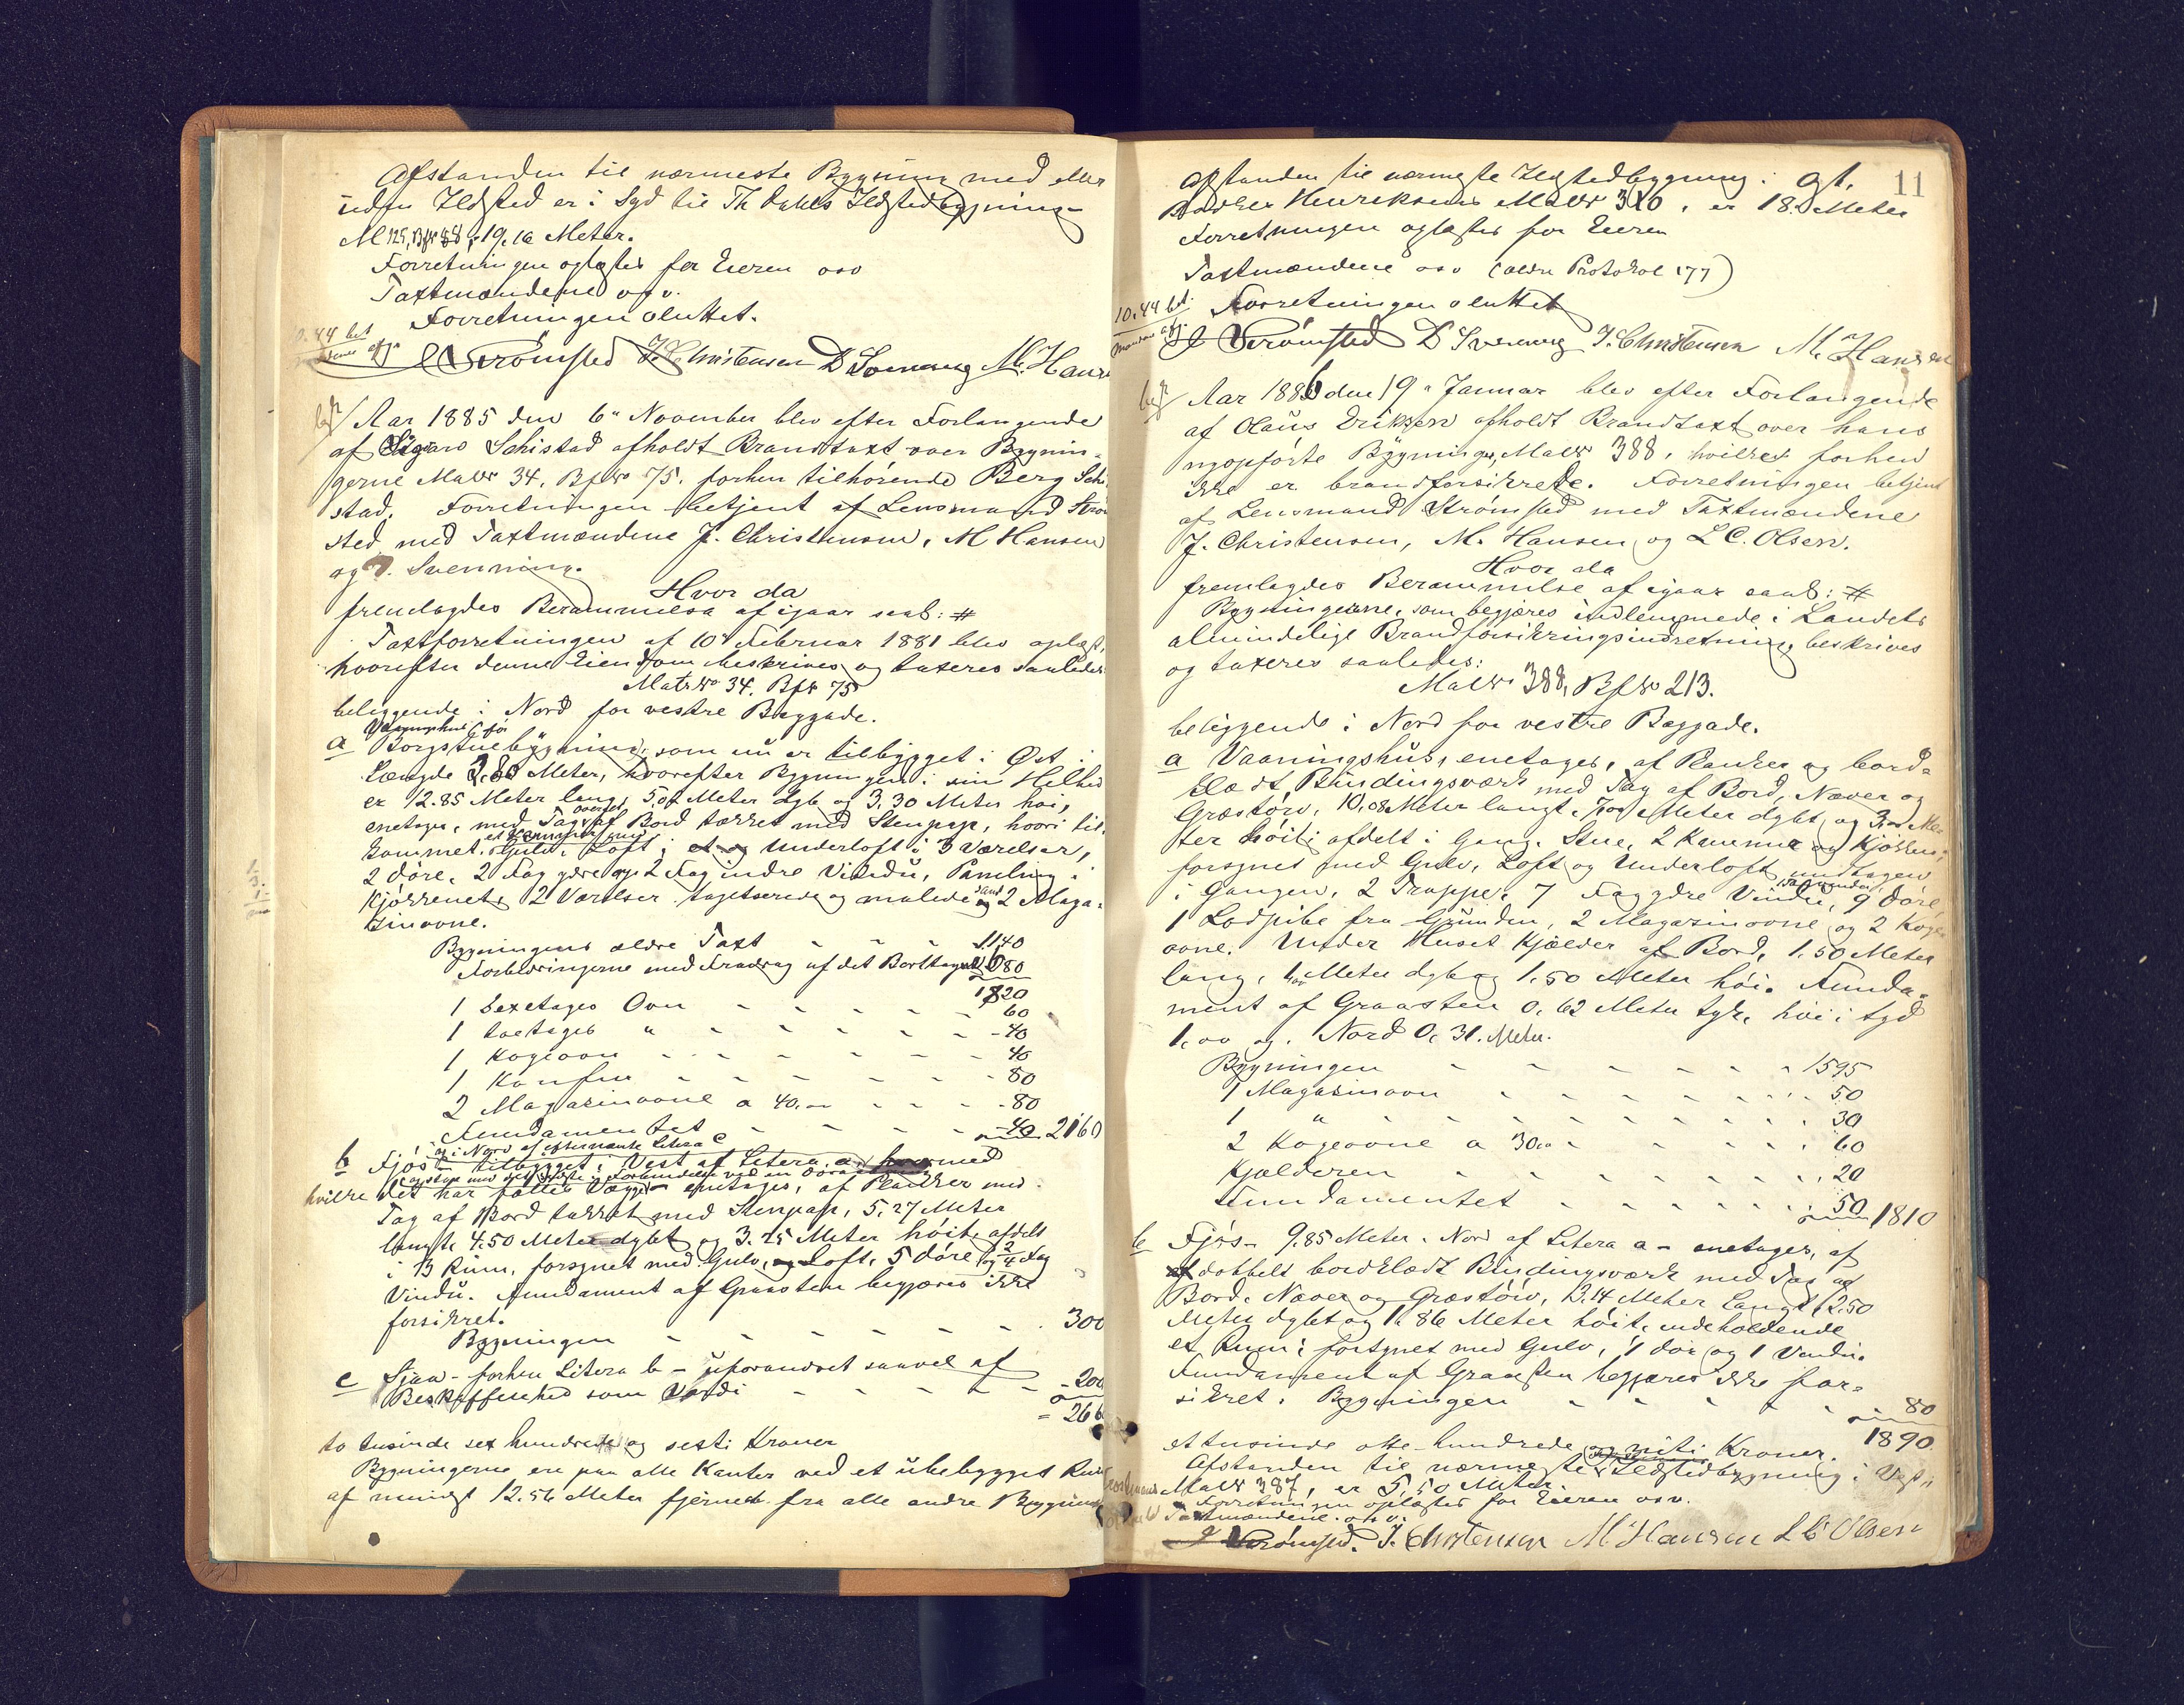 Afstanden til nærmeste Bygning med eller
uden Ildsted er i Syd til Th Dahls Ildstedbygning
19,16 Meter.
Forretningen oplæstes for Eieren osv
Taxtmændene osv.
Forretningen sluttet.
Strømsted J. Christensen D Svenning M. Hansen
Aar 1885 den 6" November blev efter Forlangende
af Schistad afholdt Brandtaxt over Bygnin-
gerne MatNo 34. BfNo 75. forhen tilhørende Berg Schi
stad. Forretningen betjent af Lensmand Strøm
sted med Taxtmændene J. Christensen, M Hansen
og D. Svenning.
Hvor da
fremlagdes Berammelse af igaar saal: #
Taxtforretningen af 10" Februar 1881 blev oplæst,
hvorefter denne Eiendom beskrives og taxeres saaledes
MatrNo 34. BfNo 75
beliggende i Nord for vestre Baggade.
Vaaningshus, før
a Borgstuebygning, som nu er tilbygget i Øst i
Længde Meter, hvorefter Bygningen i sin Helhed
er 12.85 Meter lang, Meter dyb og 3.30 Meter høi,
enetages, med Tag af Bord tækket med Stenpap, hvori til-
kommet: Gulv, Loft i Underloft i 3 Værelser,
2 døre, 2 Fag ydre og 2 Fag indre Vindu, Paneling i
Kjøkkenet, 2 Værelser tapetserede og malede samt 2 Maga-
zinovne.
Bygningens ældre Taxt - - - 1140
Forbedringerne med Fradrag af det Borttagne 680
1820
1 sexetages Ovn - - - - 60
1 toetages " - - - - 40
1 Kogeovn - - - - 40
1 Komfur - - - - 80
2 Magasinovne a 40,00 - - - 80
Fundamentet - - - - 40 2160
og i Nord af efternævnte Litera C
b Fjøs tilbygget i Vest af Litera a, hvormed
hvilke det har fælles Vægge - enetages, af Planker med
Tag af Bord tækket med Stenpap, 5,27 Meter
langt 4.50 Meter dybt og 3.75 Meter høit, afdelt
i 3 Rum, forsynet med Gulv, Loft, 5 døre og 2/4 Fag
Vindu. Fundament af Graasten begjæres ikke
forsikret.
Bygningen - - - - - 300
c Sjaa - forhen Litera b - uforandret saavel af
Beskaffenhed som Værdi - - - - 200
= 266
to tusinde sex hundrede og sexti Kroner
Bygningerne ere paa alle Kanter ved et ubebygget Rum
af mindst 12.56 Meter fjernet fra alle andre Bygninger
11
Afstanden til nærmeste Ildstedbygning i Øst,
Henriksens MatNo er 18.0 Meter
Forretningen oplæstes for Eieren
Taxtmændene osv (ældre Protokol 177)
10.44 bet. Forretningen sluttet
Strømsted D Svenning J. Christensen M. Hansen
Aar 1886 den 19" Januar blev efter Forlangende
af Olaus Eriksen afholdt Brandtaxt over hans
nyopførte Bygninger, MatNo 388, hvilke forhen
ikke er brandforsikrede. Forretningen betjent
af Lensmand Strømsted med Taxtmændene
J. Christensen, M. Hansen og L C. Olsen.
Hvor da
fremlagdes Berammelse af igaar saal: #
Bygningerne, som begjæres indlemmede i Landets
almindelige Brandforsikringsindretning, beskrives
og taxeres saaledes:
MatNo 388, BfNo 213.
beliggende i Nord for vestre Baggade.
a Vaaningshus, enetages, af Planker og bord-
klædt Bindingsværk med Tag af Bord, Næver og
Græstørv, 10,08 Meter langt, Meter dybt, og Me-
ter høit, afdelt i Gang, Stue, 2 Kammer og Kjøkken,
forsynet med Gulv, Loft og Underloft undtagen
i Gangen, 2 Trapper, 7 Fag ydre Vindu, 9 døre,
1 Lodpibe fra Grunden, 2 Magazinovne og 2 Koge
ovne. Under Huset Kjælder af Bord, 1.50 Meter
lang, Meter dyb og 1.50 Meter høi. Funda-
ment af Graasten 0,62 Meter tyk, høi i Syd
1,00 og i Nord 0,31 Meter.
Bygningen - - - - 1595
1 Magasinovn - - - - 50
1 " - - - - 30
2 Kogeovne a 30,00 - - - 60
Kjælderen - - - - 20
Fundamentet - - - - 50 1810
b Fjøs - 9.85 Meter i Nord af Litera a - enetages, af
dobbelt bordklædt Bindingsværk med Tag af
Bord, Næver og Græstørv, 3.14 Meter langt, 2.50
Meter dybt og 1.86 Meter høit, indeholdende
et Rum, forsynet med Gulv, 1 dør og 1 Vindu.
Fundament af Graasten begjæres ikke for-
sikret. Bygningen - - - - 80
1890
et tusinde otte hundrede og niti Kroner.
Afstanden til nærmeste Ildstedbygning i Vest,
MatNo 387, er 5,50 Meter.
Forretningen oplæstes for Eieren osv.
Taxtmændene osv.
Strømsted. J. Christensen M Hansen L C Olsen